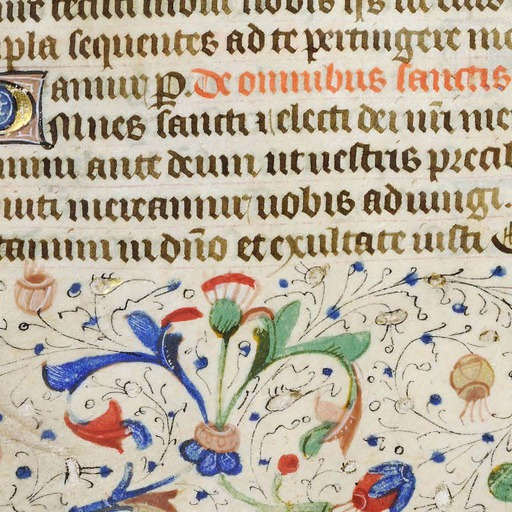 nobis
pla sequentes ad te pertingere
amur p. De omnibus sanctis
Omnes sancti et electi dei nr̄i me
mini ante deum ut uestris precib
iuti mereamur uobis adiungi.
tamini in dn̄o et exultate iusti